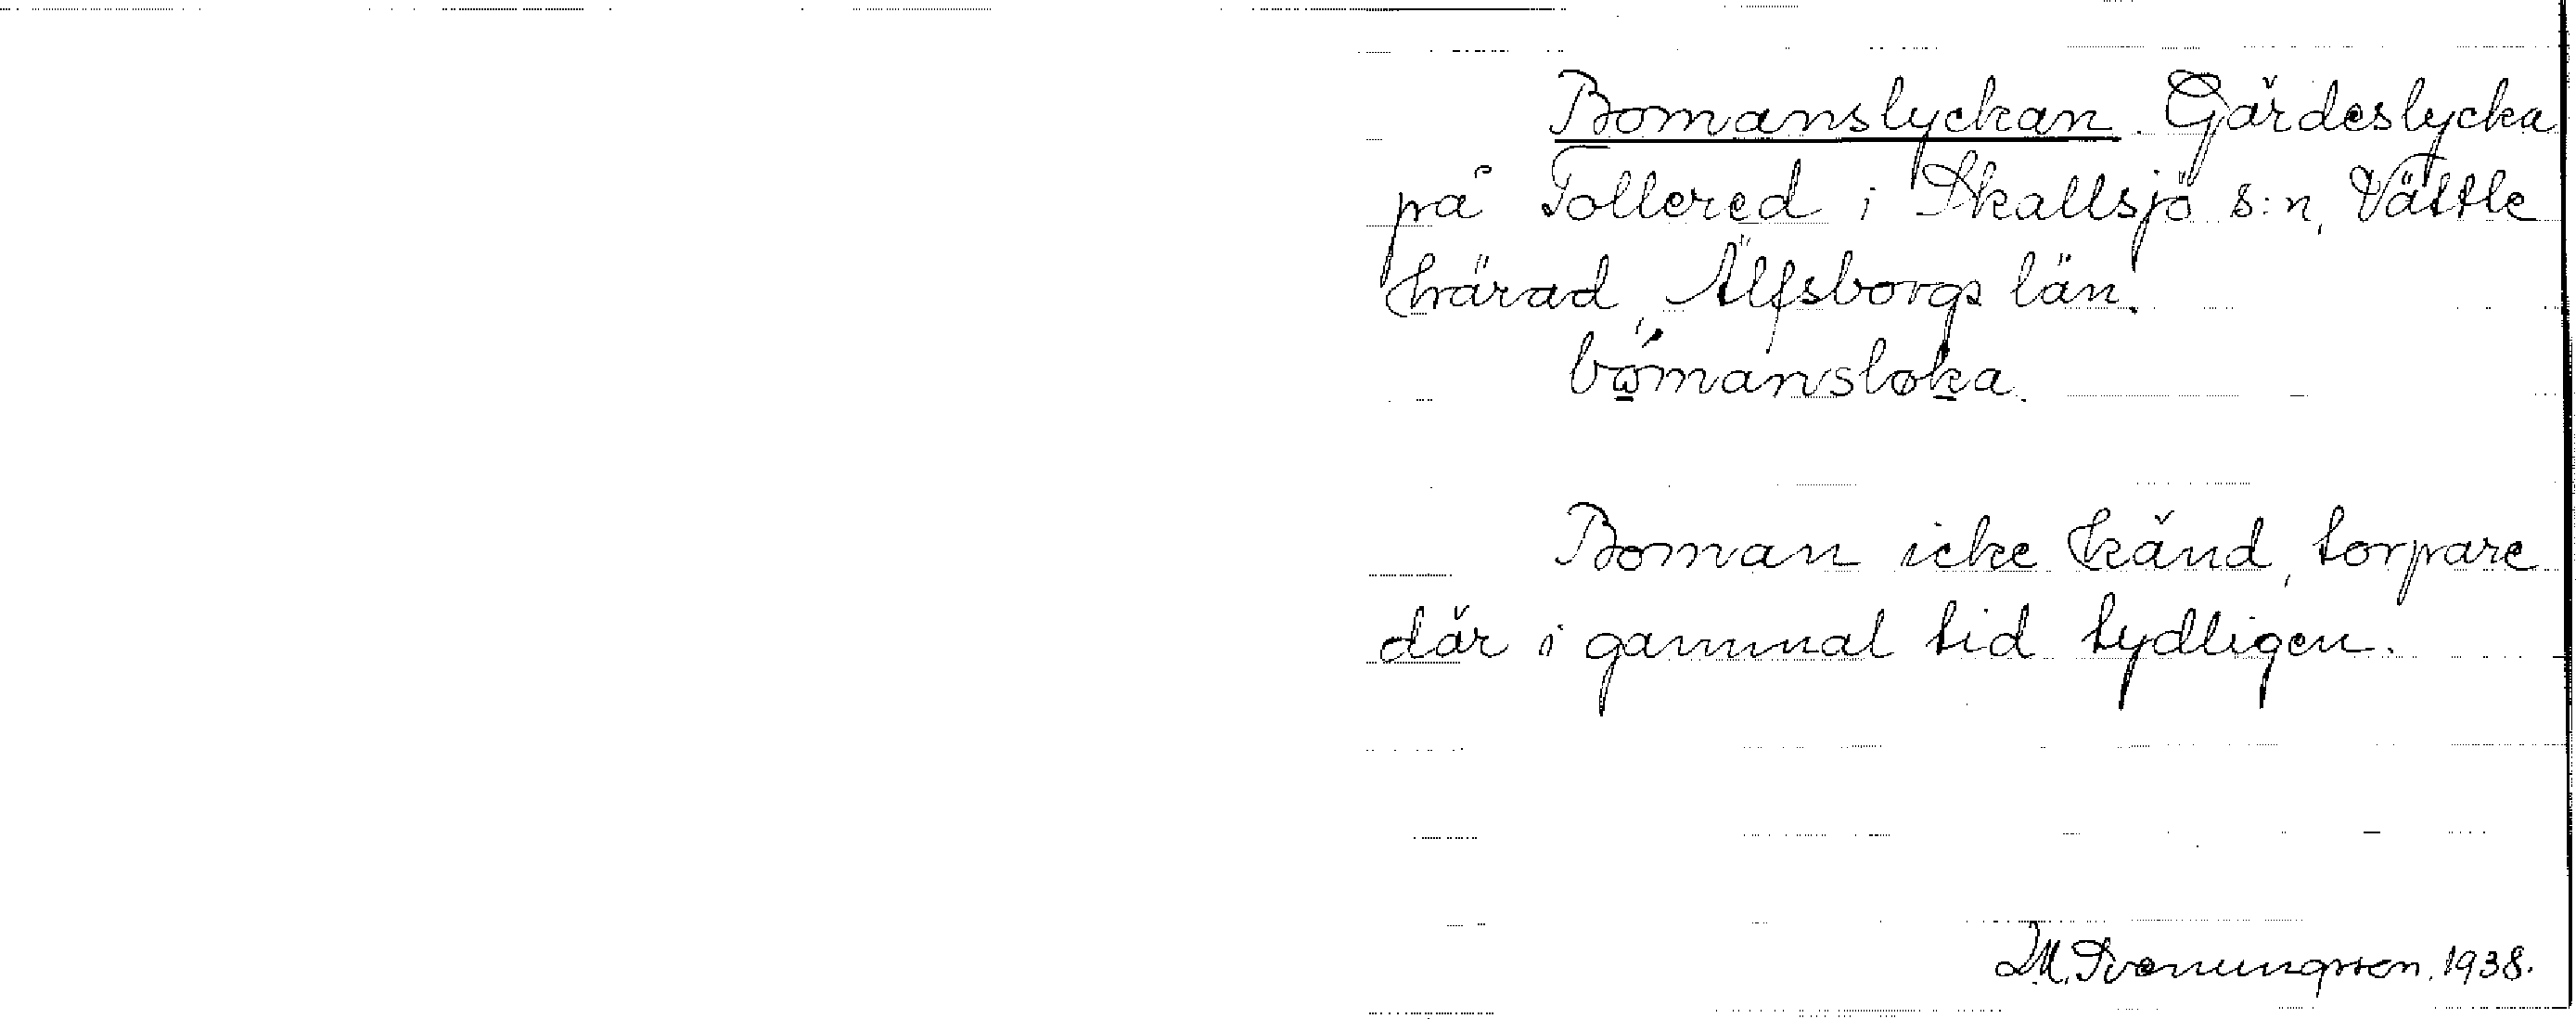 Bomanslyckan. Gärdeslycka
på Tollered i Skallsjö s:n, Vättle
härad, Älfsborgs län.
bömansløka.
Boman icke känd, torpare
där i gammal tid tydligen.
M. Svenungsson. 1938.